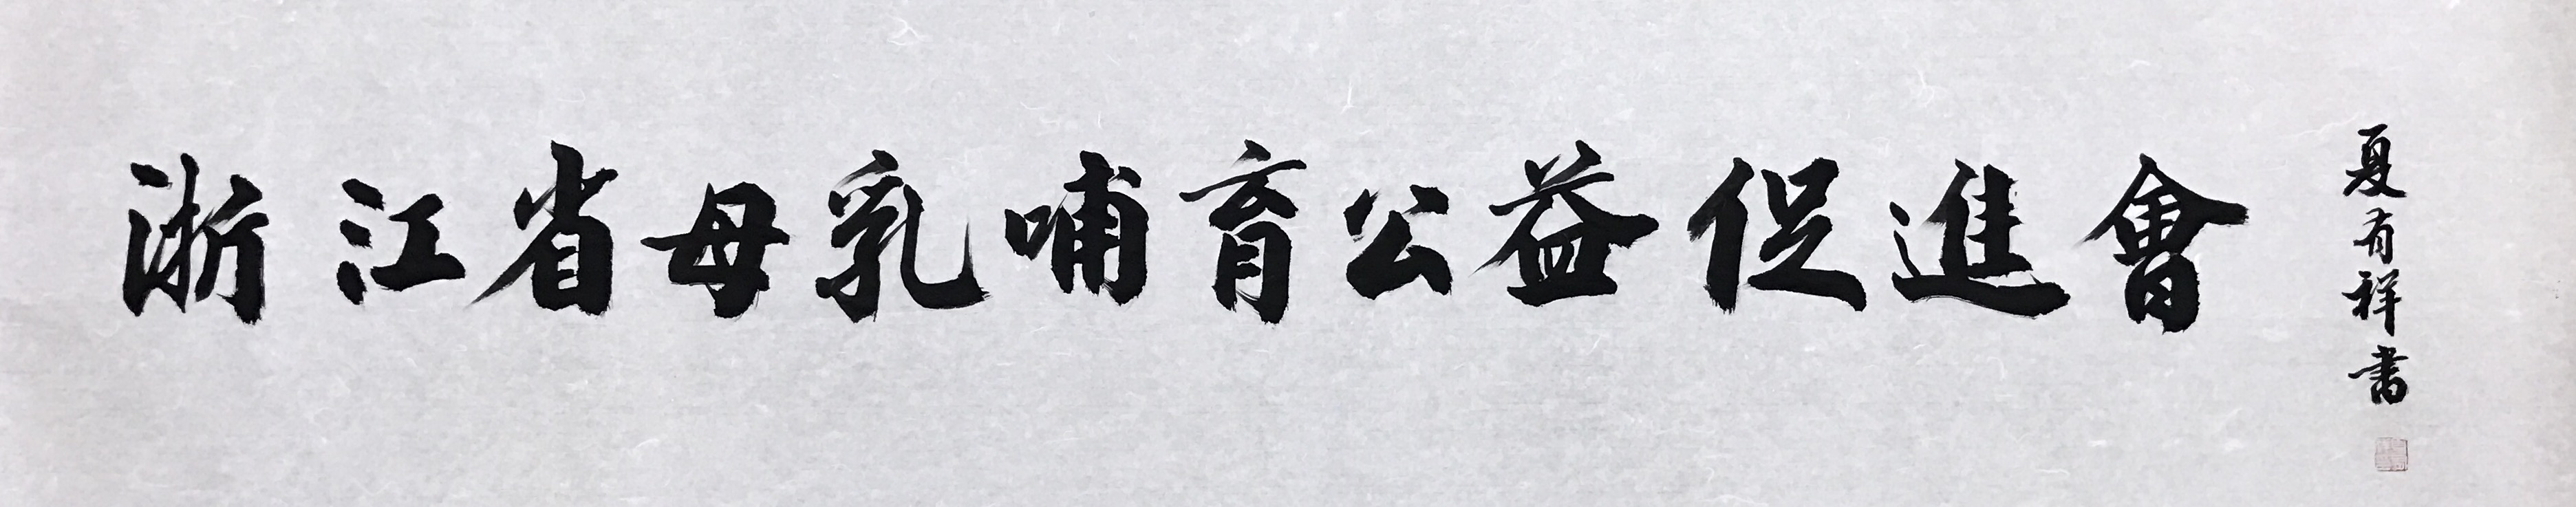 浙江省母乳哺育公益促進會
夏有祥书